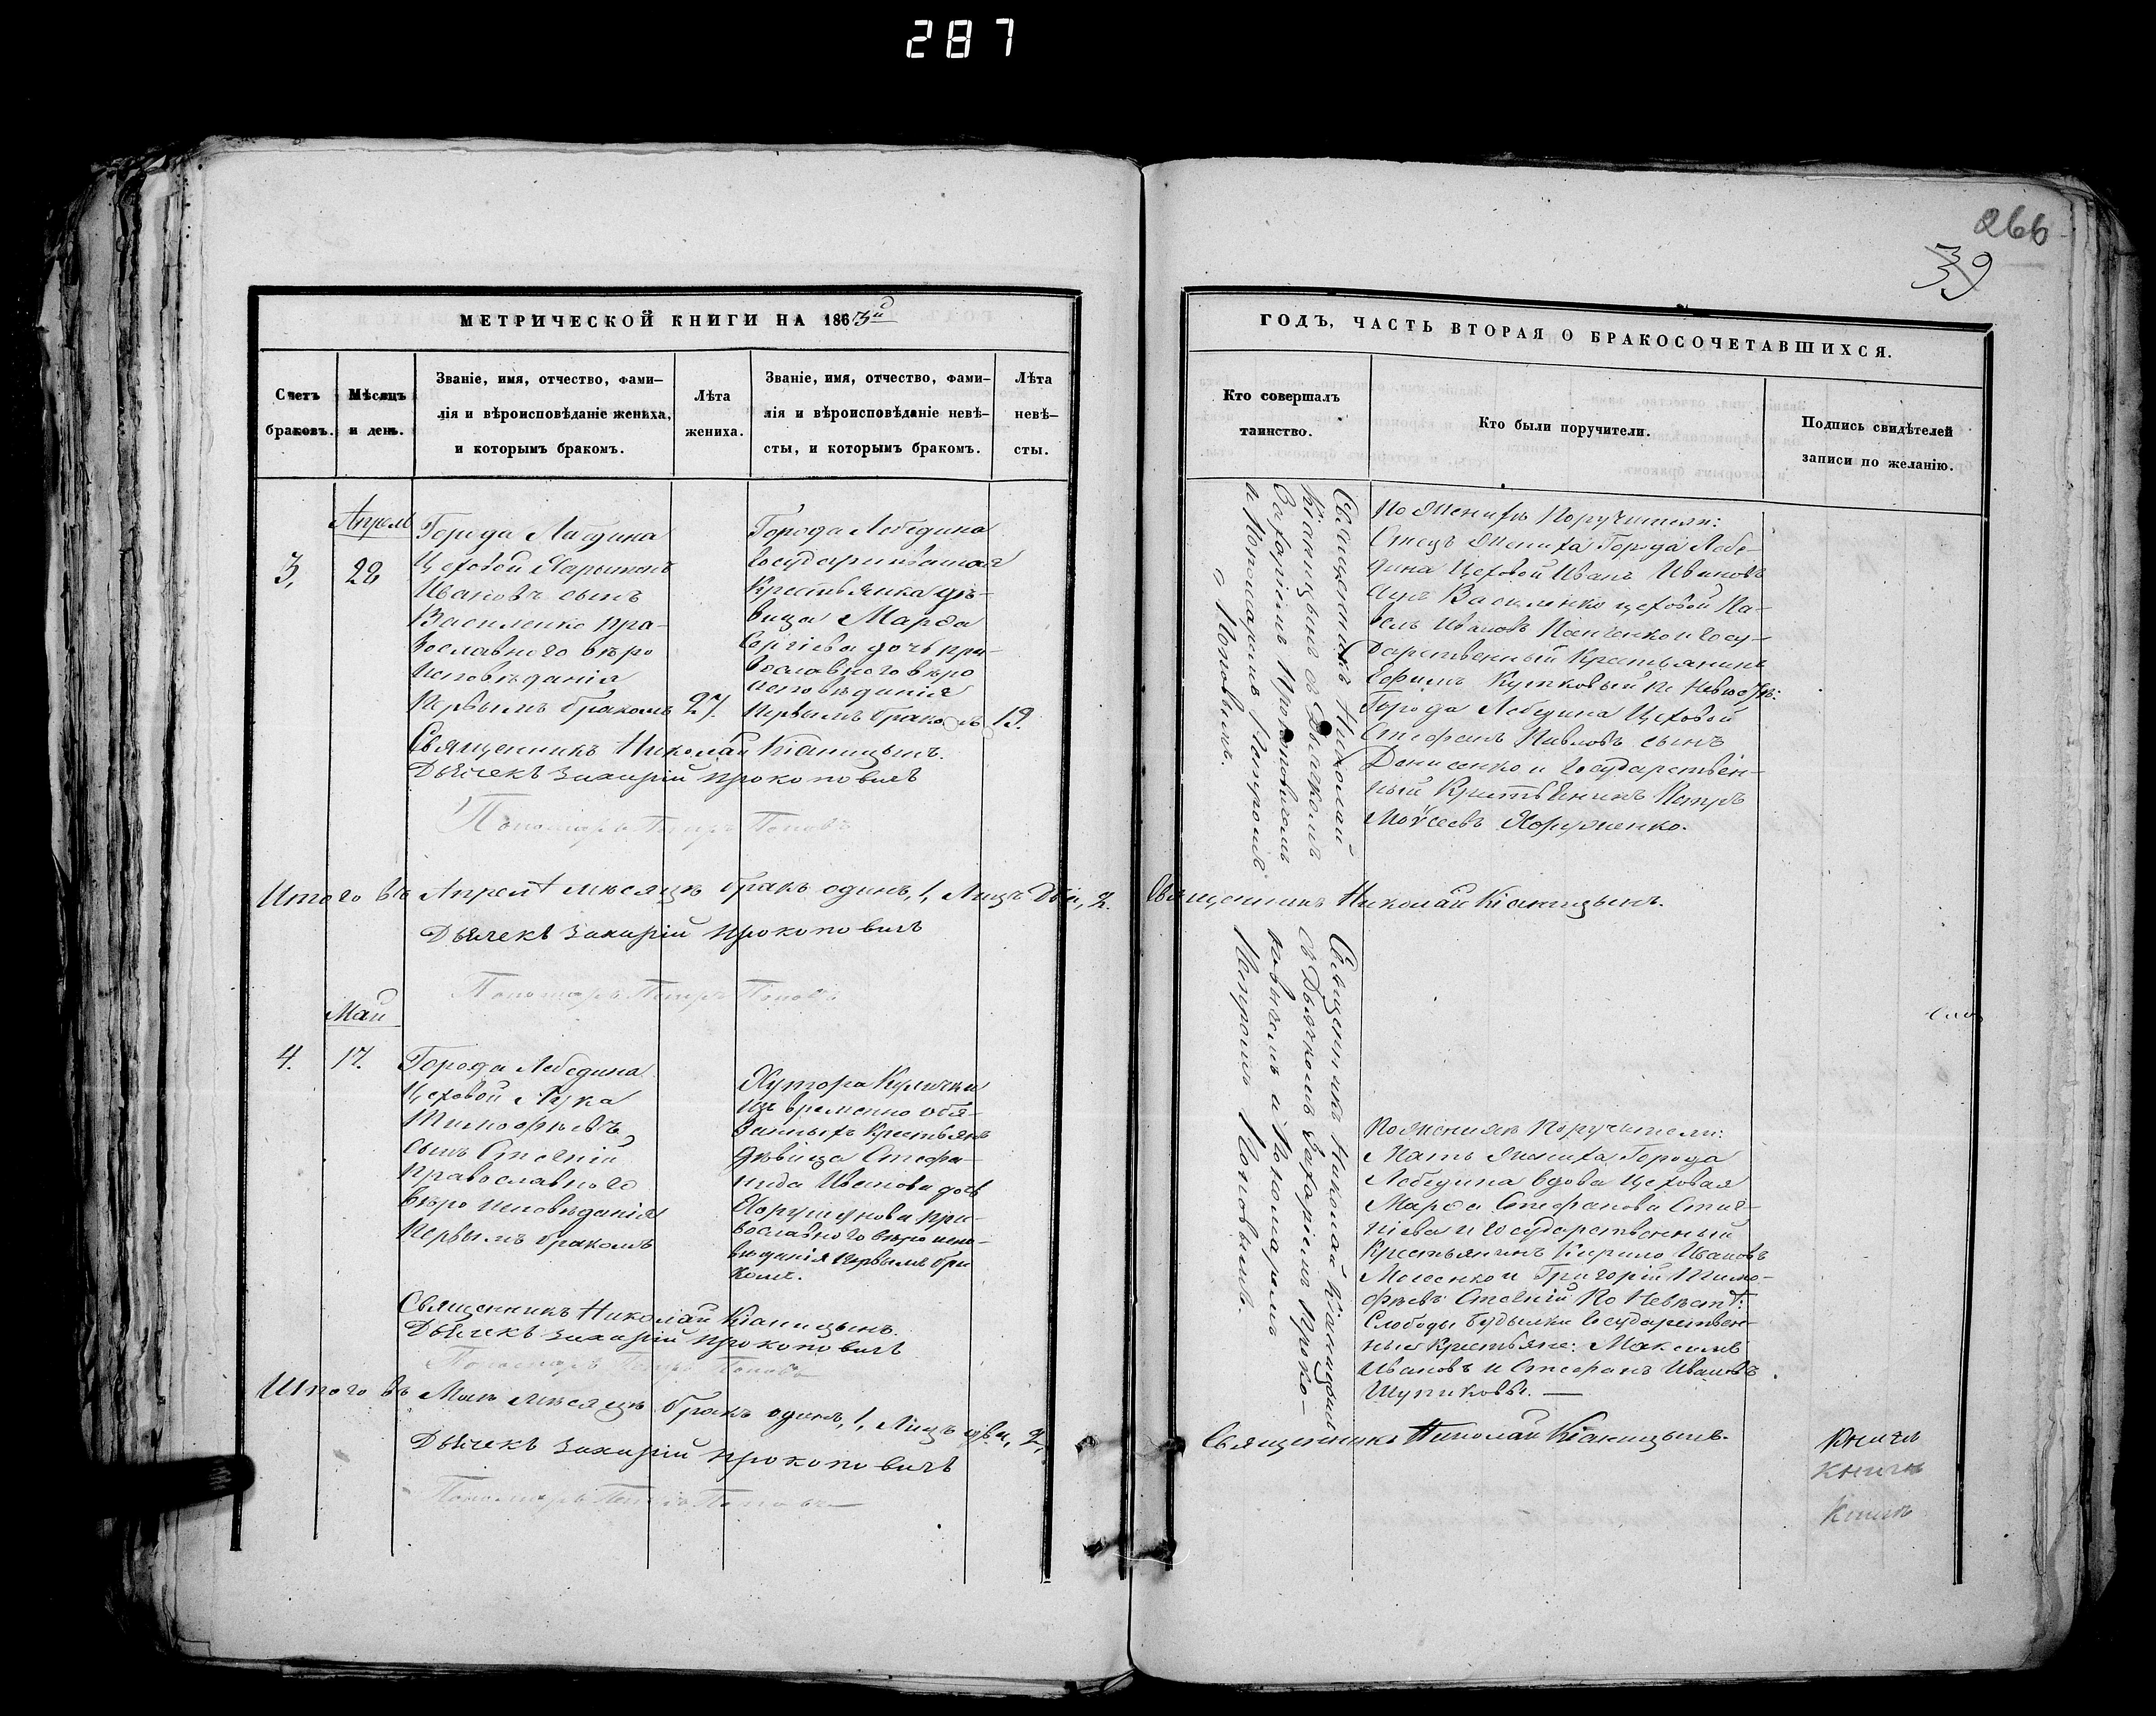 287
266
39
МЕТРИЧЕСКОЙ КНИГИ НА 1863й
Счетъ
браковъ.
Мѣсяцъ
и день.
Званіе, имя, отчество, фами-
лія и вѣроисповѣданіе жениха,
и которымъ бракомъ.
Лѣта
жениха.
Званіе, имя, отчество, фами-
лія и вѣроисповѣданіе невѣ-
сты, и которымъ бракомъ.
Лѣта
невѣ-
сты.
3,
Апрель
28
Города Лебедина
Цеховой
Ивановъ сынъ
Василенко пра-
вославного вѣро
исповѣданія
первымъ бракомъ
27.
Города Лебедина
Государственная
Крестьянка дѣ-
вица Марѳа
Сергіева дочь пра-
вославного вѣро
исповѣданія
первымъ бракомъ
19.
Священникъ Николай Кіаницынъ.
Дьячекъ Захарій Прокоповичъ
Пономарь Петръ Поповъ
Итого въ Апрелѣ мѣсяцѣ бракъ одинъ, 1, Лицъ два, 2.
Дьячекъ Захарій Прокоповичъ
Пономарь Петръ Поповъ
4.
Май
17.
Города Лебедина
Цеховой Лука
Тимофѣевъ
сынъ
православного
вѣро исповѣданія
первымъ бракомъ
Хутора
изъ временно обя-
занныхъ крестьянъ
дѣвица Стефа-
нида Иванова дочь
пра-
вославного вѣро испо-
вѣданія первымъ бра
комъ.
Священникъ Николай Кіаницынъ.
Дьячекъ Захарій Прокоповичъ
Пономарь Петръ Поповъ
Итого въ Маѣ мѣсяцѣ бракъ одинъ, 1, Лицъ два, 2,
Дьячекъ Захарій Прокоповичъ
Пономарь Петръ Поповъ
ГОДЪ, ЧАСТЬ ВТОРАЯ О БРАКОСОЧЕТАВШИХСЯ.
Кто совершалъ
таинство.
Кто были поручители.
Подпись свидѣтелей
записи по желанію.
Священникъ Николай
Кіаницынъ съ Дьячкомъ
Захаріемъ Прокоповичомъ
и Пономаремъ Петромъ
Поповымъ.
По Женихѣ Поручители:
Отецъ жениха Города Лебе-
дина Цеховой Иванъ Ивановъ
сынъ Василенко цеховой Па-
велъ Ивановъ и Госу-
дарственный Крестьянинъ
Ефимъ по Невѣстѣ:
Города Лебедина Цеховой
Стефанъ Павловъ сынъ
Денисенко и Государствен-
ный Крестьянинъ Петръ
Моѵсеевъ
Священникъ Николай Кіаницынъ.
Священникъ Николай Кіаницынъ
съ Дьячкомъ Захаріемъ Проко-
повичемъ и Пономаремъ
Петромъ Поповымъ.
По женихѣ Поручители:
Мать жениха Города
Лебедина вдова Цеховая
Марѳа Стефанова
и Государственный
Крестьянинъ Кирило Ивановъ
и Григорій Тимо-
фѣевъ По Невѣстѣ:
Слободы Будылки Государствен-
ные Крестьяне: Максимъ
Ивановъ и Стефанъ Ивановъ
Шупиковы.
Священникъ Николай Кіаницынъ.
Книги
книги